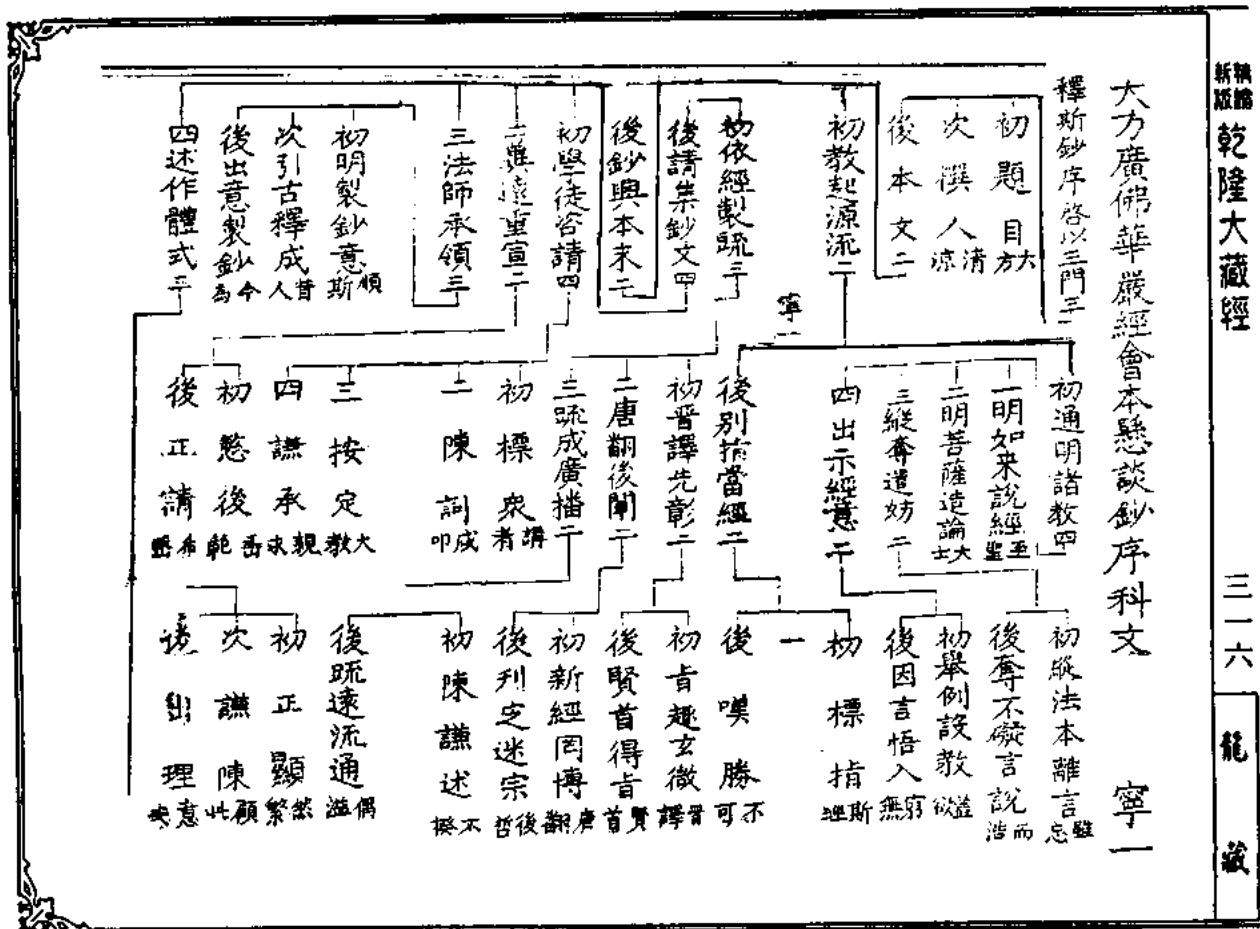 新編
縮版
乾隆大藏經
三一六
龍藏
大方廣佛華嚴經會本懸談鈔序科文 寧一
釋斯鈔序啓以三門三
初題目 大方
次撰人 清涼
後本文二
初教起源流二
初依經製疏三
後請集鈔文四
後鈔興本末二
初學徒咨請四
二興遠重宣二
三法師承領三
初明製鈔意 順斯
次引古釋成 昔人
後出意製鈔 今為
四述作體式三
寧一
初通明諸教四
一明如來說經 至聖
二明菩薩造論 大士
三縱奪遣妨二
四出示經意二
後別指當經二
初晉譯先彰二
二唐翻後闡二
三疏成廣播二
初標衆 講者
二陳詞 咸叩
三按定 大教
四謙承 親承
初慜後
後正請 希
初縱法本離言 雖忘
後奪不礙言說 而浩
初舉例設教 蓋欲
後因言悟入 窮無
初標指 斯
一
後嘆勝 不可
初旨趣玄微 晉譯
後賢首得旨 賢首
初新經罔博 唐翻
後刊定迷宗 後哲
初陳謙述 不揆
後疏遠流通 偶溢
初正顯 然繁
次謙陳 顧此
後出理 意